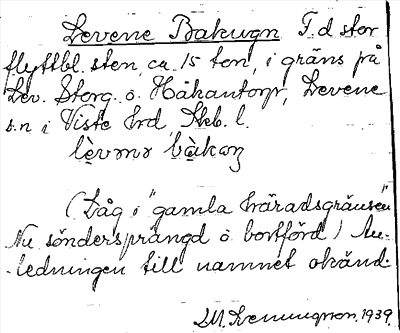 Levene Bakugn F. d. stor
flyttbl. sten, ca 15 ton, i gräns på
Lev. Storg. o. Håkantorp, Levene
s:n i Viste hrd. Skb. l.
(Låg i "gamla häradsgränsen"
Nu söndersprängd o bortförd) An-
-ledningen till namnet okänd.
1939.